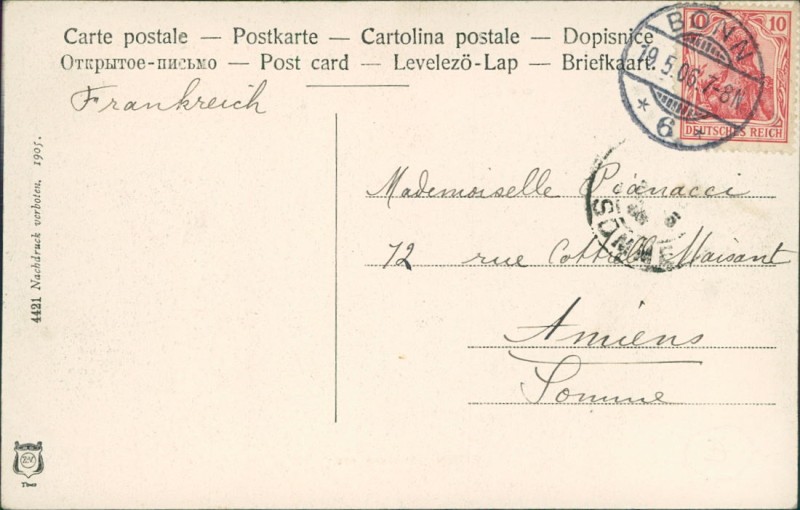 Carte postale — Postkarte — Cartolina postale — Dopisnice
Открытое-письмо — Post card — Levelező-Lap — Briefkaart.
Frankreich
BONN
19.5.06. 7-8N
* 6 *
10
DEUTSCHES REICH
Mademoiselle Pianacci
72 rue Maisant
Amiens
Somme
SOMME
4421 Nachdruck verboten. 1905.